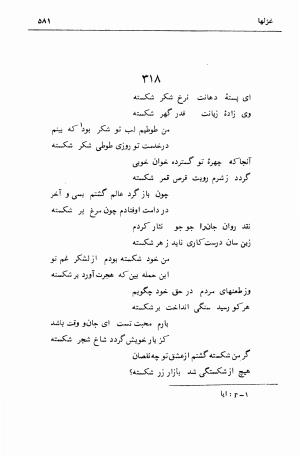 غزلها ۵۸۱
۳۱۸
ای پستۀ دهانت نرخ شکر شکسته
وی زادۀ زبانت قدر گهر شکسته
من طوطیم لب تو شکر بود۱ که بینم
در خدمت تو روزی طوطی شکر شکسته
آنجا که چهرۀ تو گسترده خوان خوبی
گردد ز شرم رویت قرص قمر شکسته
چون باز گرد عالم گشتم بسی و آخر
در دامت اوفتادم چون مرغ پر شکسته
نقد روان جان را جو جو نثار کردم
زین سان درست کاری ناید ز هر شکسته
من خود شکسته بودم از لشکر غم تو
این حمله بین که هجرت آورد بر شکسته
وز طعنهای مردم در حق خود چگویم
هر کو رسید سنگی انداخت بر شکسته
یارم محبت تست ای جان و وقت باشد
کز بار خویش گردد شاخ شجر شکسته
گر من شکسته گشتم از عشق تو چه نقصان
هیچ از شکستگی شد بازار زر شکسته؟
۱- p : ایا